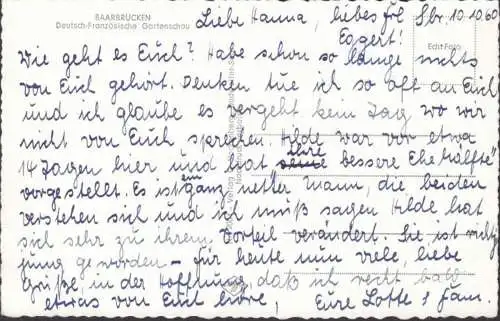 SAARBRÜCKEN
Deutsch-Französische Gartenschau
Sbr. 10.10.60
Liebe Hanna, liebes
Eggert!
Echt Foto
Wie geht es Euch? Habe schon so lange nichts
von Euch gehört. Denken tue ich so oft an Euch
und ich glaube es vergeht kein Tag wo wir
nicht von Euch sprechen. Hilde war vor etwa
14 Tagen hier und hat ihre bessere Ehe"Hälfte"
vorgestellt. Es ist ein ganz netter Mann, die beiden
verstehen sich und ich muß sagen Hilde hat
sich sehr zu ihrem Vorteil verändert. Sie ist richtig
jung geworden – für heute nun viele, liebe
Grüße, in der Hoffnung, daß ich recht bald
etwas von Euch höre, Eure Lotte & Fam.